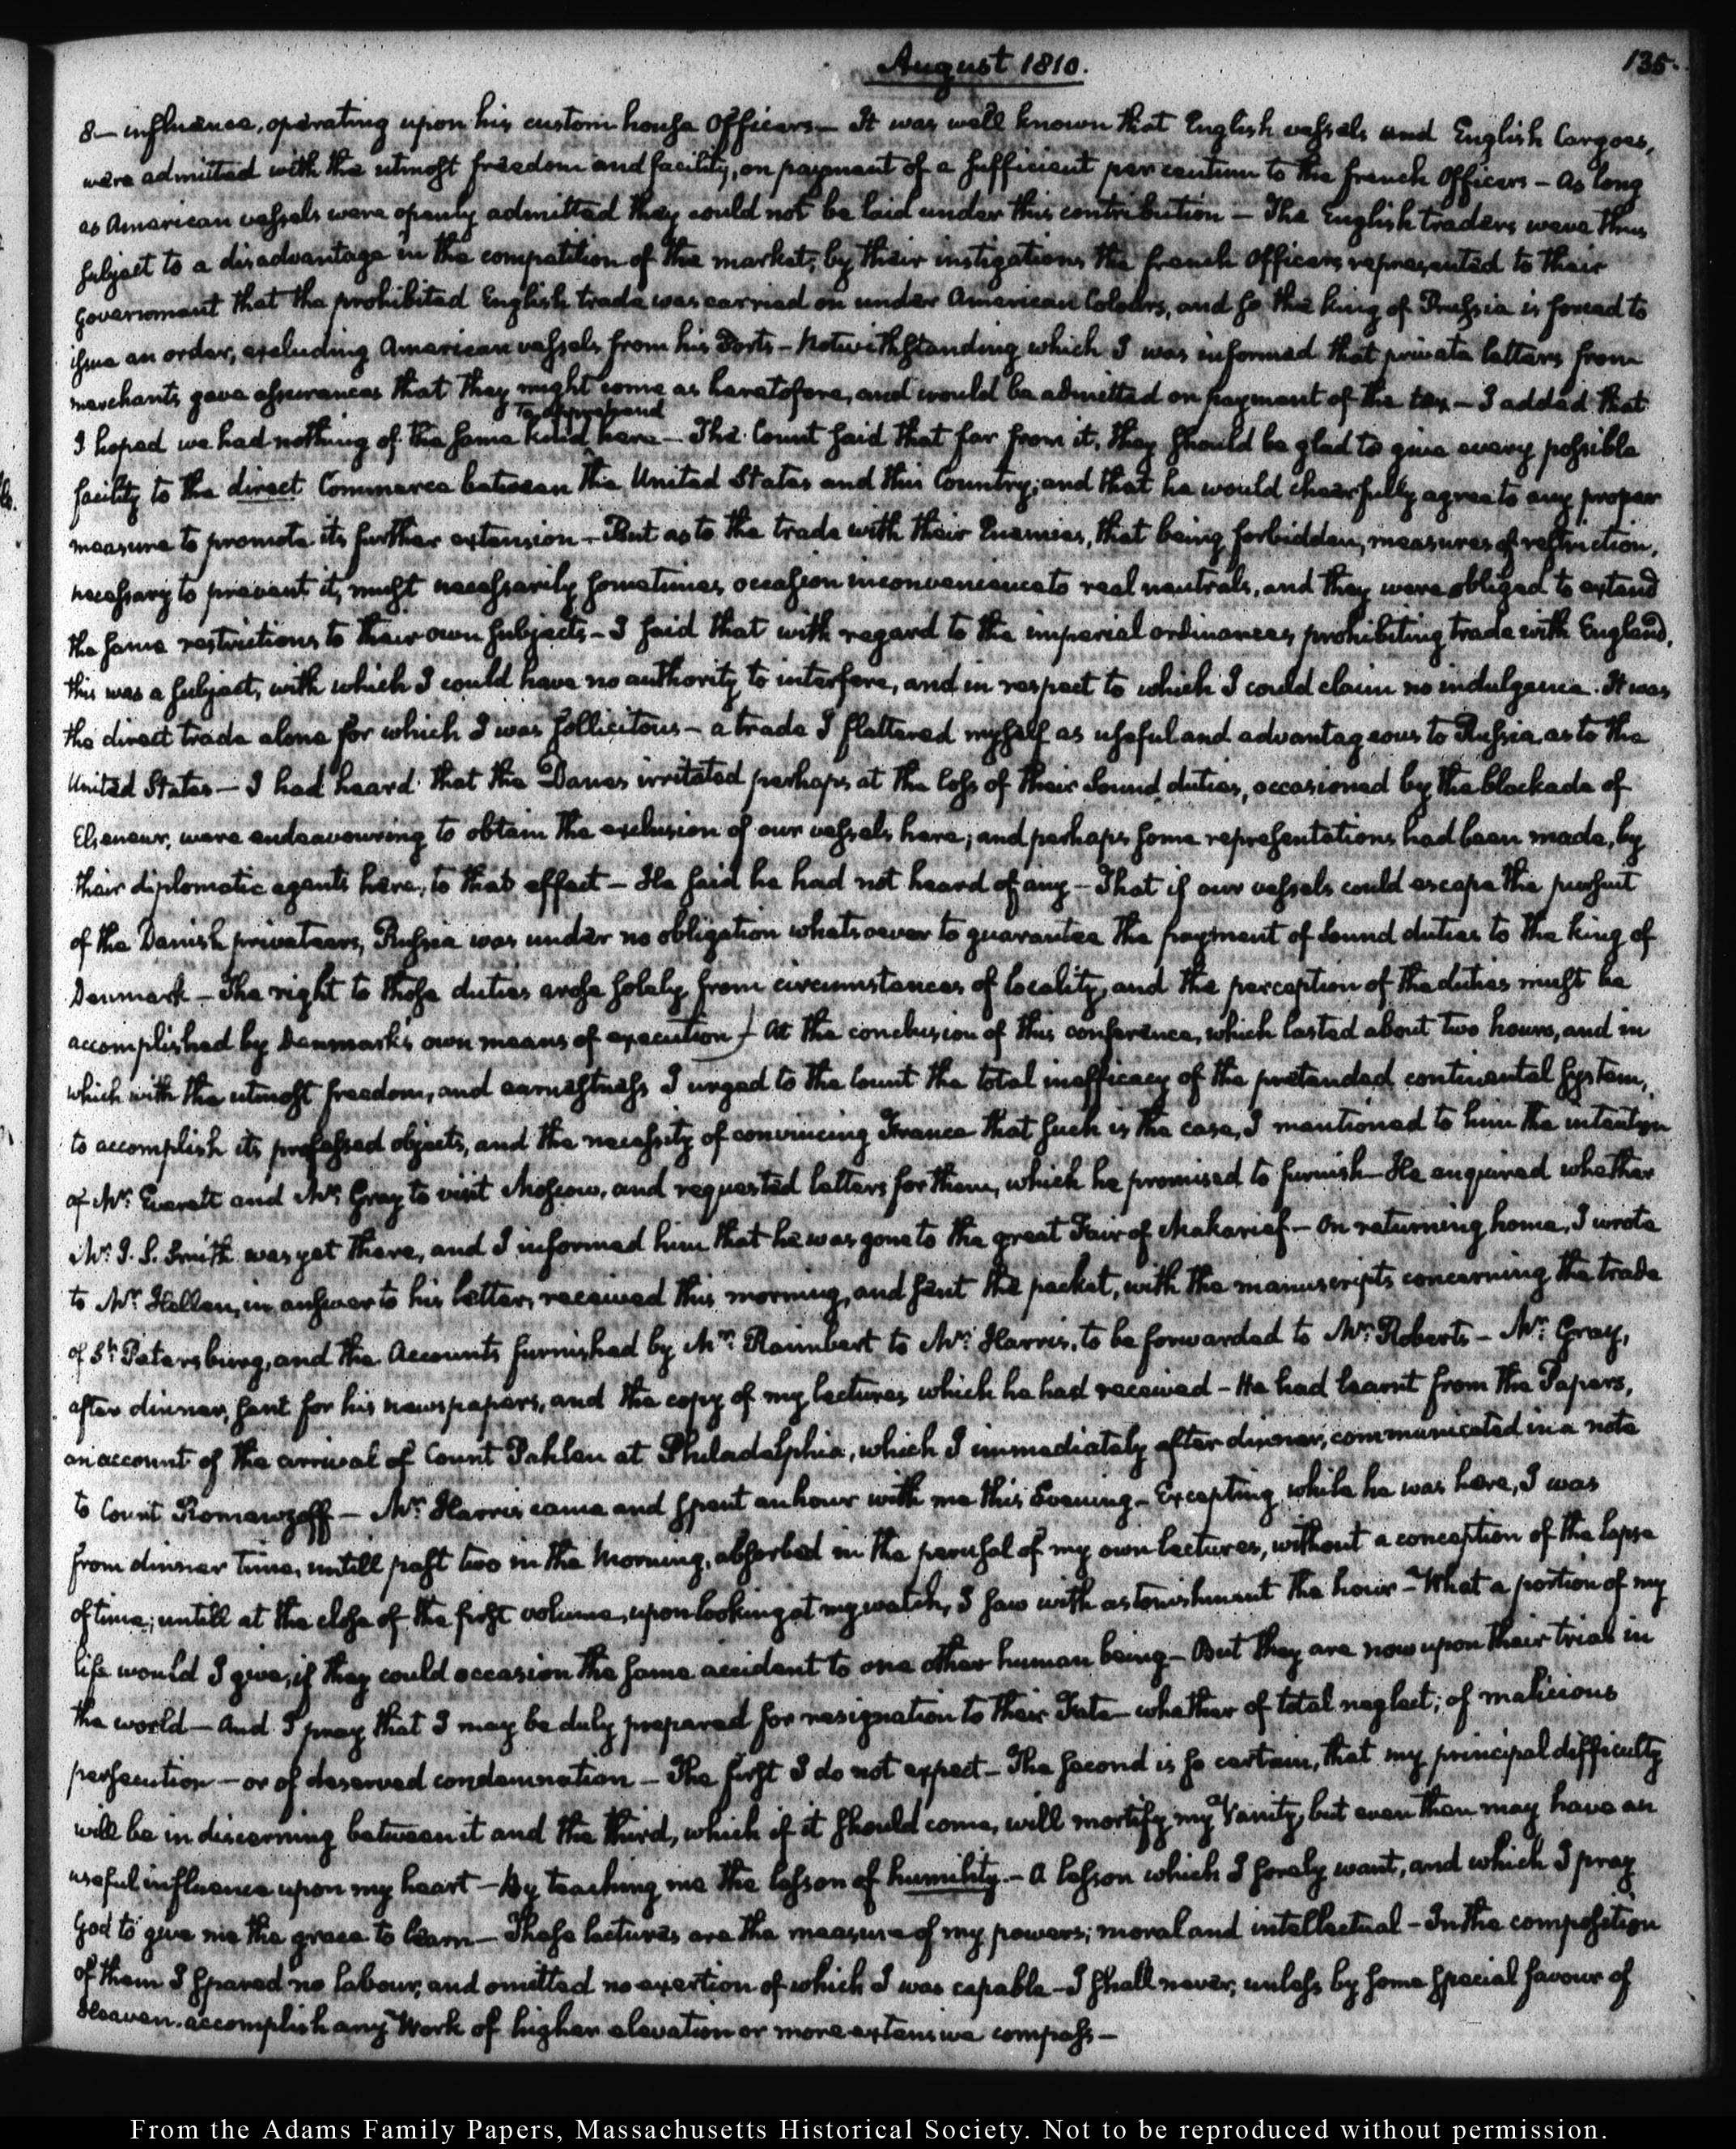 August 1810.
135.
8— influence, operating upon his custom house Officers— It was well known that English vessels and English Cargoes,
were admitted with the utmost freedom and facility, on payment of a sufficient per centum to the french Officers — As long
as American vessels were openly admitted they could not be laid under this contribution — The English traders were thus
subject to a disadvantage in the competition of the market; by their instigations the french Officers represented to their
Government that the prohibited English trade was carried on under American Colours, and so the king of Prussia is forced to
issue an order, excluding American vessels from his Ports — Notwithstanding which I was informed that private letters from
merchants gave assurances that they might come as heretofore, and would be admitted on payment of the tax — I added that
to apprehend
I hoped we had nothing of the same kind here — The Count said that far from it, they should be glad to give every possible
facility to the direct Commerce between the United States and this Country; and that he would cheerfully agree to any proper
measure to promote its further extension — But as to the trade with their Enemies, that being forbidden, measures of restriction,
necessary to prevent it, must necessarily sometimes occasion inconvenience to real neutrals, and they were obliged to extend
the same restrictions to their own subjects — I said that with regard to the imperial ordinances, prohibiting trade with England,
this was a subject, with which I could have no authority to interfere, and in respect to which I could claim no indulgence. It was
the direct trade alone for which I was sollicitous — a trade I flattered myself as useful and advantageous to Russia, as to the
United States — I had heard that the Danes irritated perhaps at the loss of their Sound duties, occasioned by the blockade of
Elseneur, were endeavouring to obtain the exclusion of our vessels here; and perhaps some representations had been made, by
their diplomatic agents here, to that effect — He said he had not heard of any — That if our vessels could escape the pursuit
of the Danish privateers, Russia was under no obligation whatsoever to guarantee the payment of Sound duties to the king of
Denmark — The right to those duties arose solely from circumstances of locality, and the perception of the duties must be
accomplished by Denmark's own means of execution) — At the conclusion of this conference, which lasted about two hours, and in
which with the utmost freedom, and earnestness I urged to the Count the total inefficacy of the pretended continental system,
to accomplish its professed objects, and the necessity of convincing France that such is the case, I mentioned to him the intention
of Mr. Everett and Mr. Gray to visit Moscow, and requested letters for them, which he promised to furnish — He enquired whether
Mr. J. S. Smith was yet there, and I informed him that he was gone to the great Fair of Makarief — On returning home, I wrote
to Mr. Hellen, in answer to his letter, received this morning, and sent the packet, with the manuscripts concerning the trade
of St. Petersburg, and the Accounts furnished by Mr. Raimbert to Mr. Harris, to be forwarded to Mr. Roberts — Mr. Gray,
after dinner, sent for his newspapers, and the copy of my lectures which he had received — He had learnt from the Papers,
an account of the arrival of Count Pahlen at Philadelphia, which I immediately after dinner, communicated in a note
to Count Romanzoff — Mr. Harris came and spent an hour with me this Evening — Excepting while he was here, I was
from dinner time, untill past two in the Morning, absorbed in the perusal of my own lectures, without a conception of the lapse
of time; untill at the close of the first volume, upon looking at my watch, I saw with astonishment the hour — What a portion of my
life would I give, if they could occasion the same accident to one other human being — But they are now upon their trial in
the world — And I pray that I may be duly prepared for resignation to their Fate — whether of total neglect; of malicious
persecution — or of deserved condemnation — The first I do not expect — The second is so certain, that my principal difficulty
will be in discerning between it and the third, which if it should come, will mortify my Vanity, but even then may have an
useful influence upon my heart — By teaching me the lesson of humility — A lesson which I sorely want, and which I pray
God to give me the grace to learn — These lectures are the measure of my powers; moral and intellectual — In the composition
of them I spared no labour, and omitted no exertion of which I was capable — I shall never, unless by some special favour of
Heaven, accomplish any Work of higher elevation or more extensive compass —
From the Adams Family Papers, Massachusetts Historical Society. Not to be reproduced without permission.